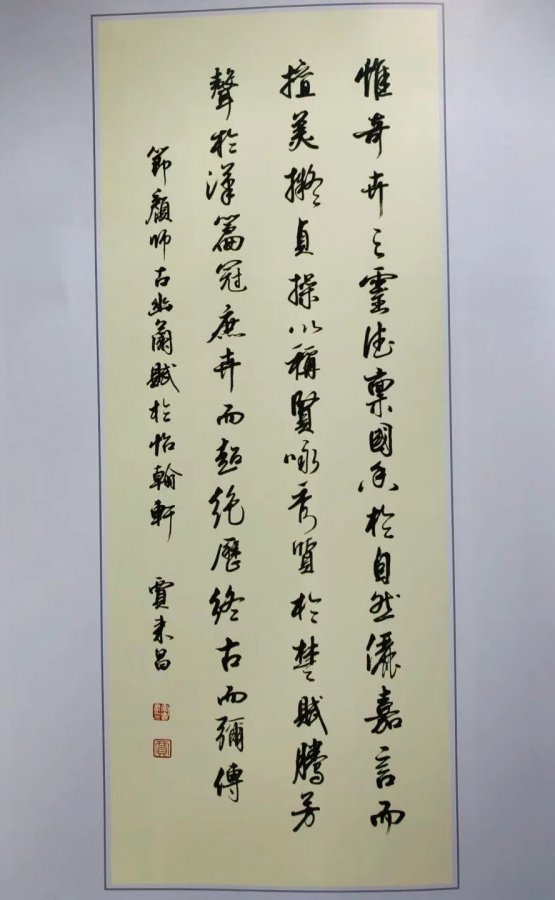 惟奇卉之靈德稟國香於自然儷嘉言而
擅美擬貞操以稱賢咏秀質於楚賦騰芳
聲於漢篇冠庶卉而超絕歷終古而彌傳
節顏師古幽蘭賦於怡翰軒 賈來昌